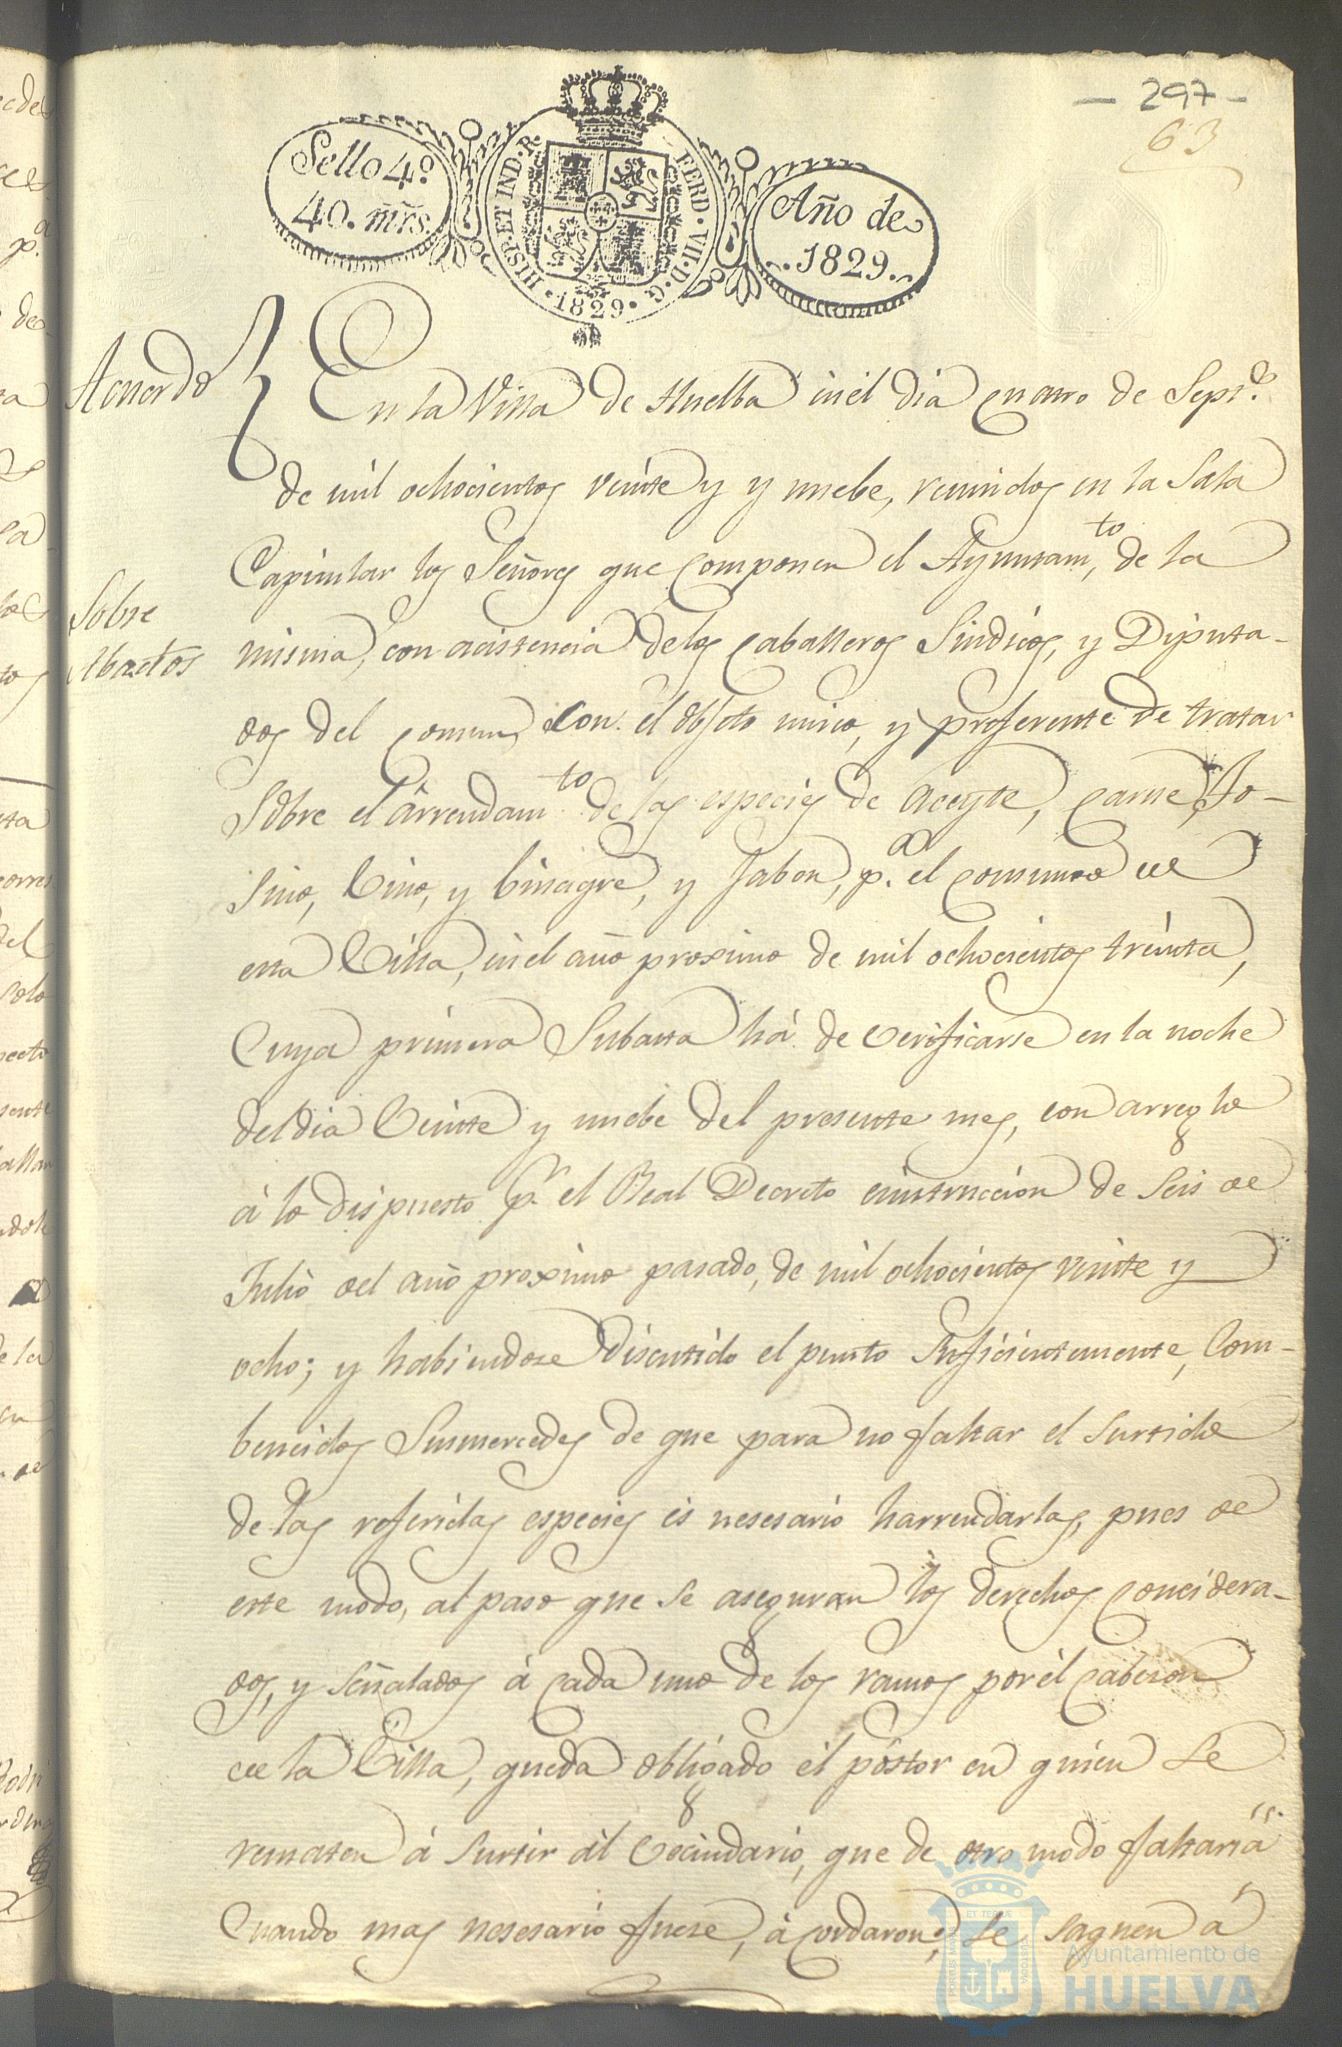 - 297 -
63
Sello 4º
40. mr̃s.
HISP. ET IND. R.
FERD. VII. D. G.
· 1829 ·
Año de
1829.
Acuerdo
En la Villa de Huelba inel dia cuatro de Septe.
de mil ochocientos veinte y y nuebe, reunidos en la Sala
Capitular los Señores que componen el Ayuntamto, de la
Sobre
Abactos
misma, con acistencia delos Caballeros Sindicos, y Diputa-
dos del comun, con el objeto unico, y preferente de tratar
Sobre el arrendamto de las especies de Aceyte, Carne, To-
sino, Vino, y binagre, y Jabon, pa. el comun de
esta Villa, inel año proximo de mil ochocientos treinta,
Cuya primera Subasta há de Verificarse en la noche
deldia Veinte y nuebe del presente mes, con arreglo
á lo dispuesto pr el Real Decreto einstruccion de seis de
Julio del año proximo pasado, de mil ochocientos veinte y
ocho; y habiendose discutido el punto suficientemente, Com-
bencidos Susmercedes de que para no faltar el Surtido
de las referidas especies es nesesario harrendarlas, pues de
este modo, al paso que se aseguran los derechos concidera-
dos, y señalados á cada uno de los ramos por el cabeson
de la Villa, queda obligado el póstor en quien se
rematen á Surtir al Vecindario, que de otro modo faltaria
Cuando mas nesesario fuese, á cordaron; se saquen á
Ayuntamiento de
HUELVA